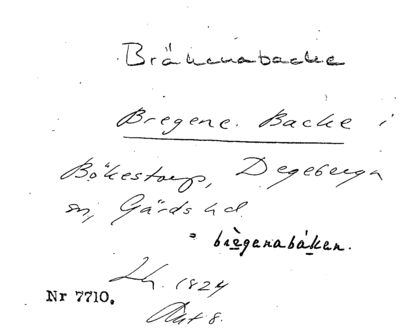 Bräkenabacke
Bregene Backe i
Bökestorp, Degeberga
sn, Gärds hd.
brègenabáken.
Lh. 1824
Nr 7710.
Akt 8.